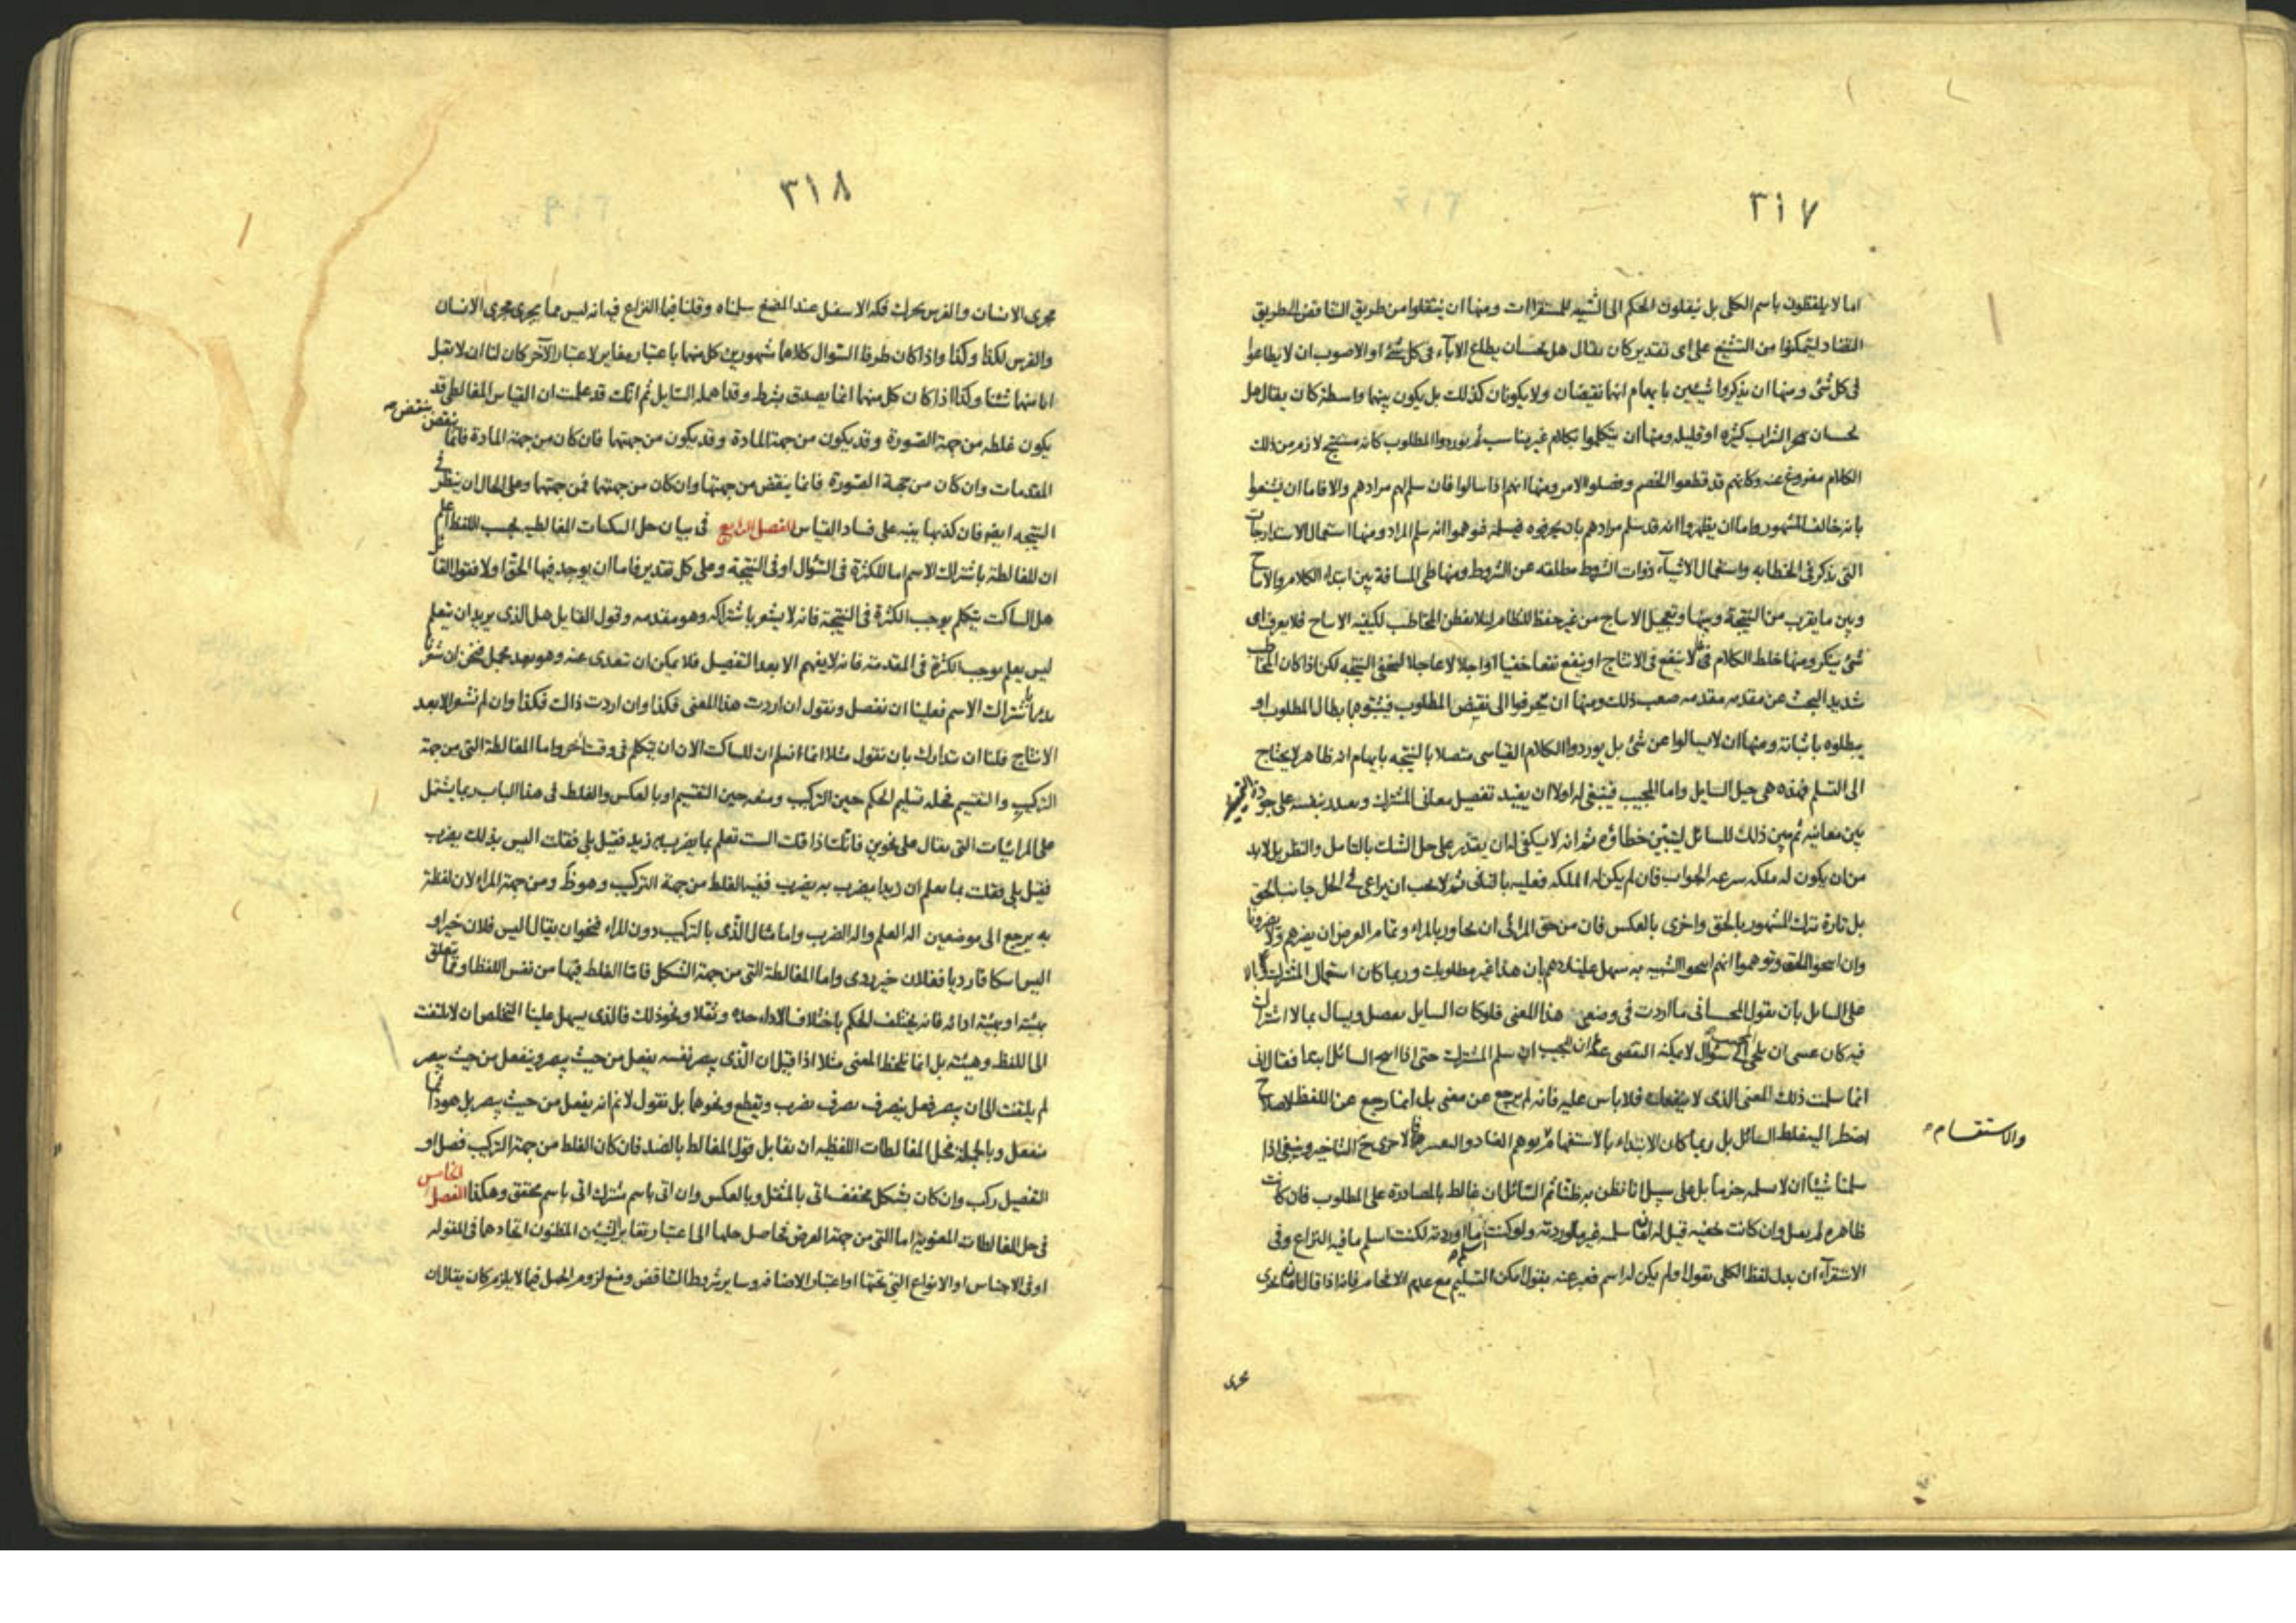 ٣١٧
اما لا يلفظون باسم الكلى بل ينقلون الحكم الى الشبيه للمستقرات ومنها ان ينتقلوا من طريق التناقض الى طريق
التضاد ليتمكنوا من التشنيع على اى تقدير كان يقال هل يحسان يطاع الاباء فى كل شئ او الاصوب ان لا يطاعوا
فى كل شئ ومنها ان يذكروا شيئين بايهام انهما نقيضان ولا يكونان كذلك بل يكون بينهما واسطة كان يقال هل
يحسان الشراب كثيره او قليله ومنها ان يتكلموا بكلام غير مناسب ثم يوردوا المطلوب كانه مستنتج لازم من ذلك
الكلام مفروغ عنه وكانهم قد قطعوا الخصم وفصلوا الامر ومنها انهم اذا سالوا فان سلم لهم مرادهم والا فاما ان يشنعوا
بانه خالف المشهور واما ان يظهروا انه قد سلم مرادهم بان يحرفوه فيسلمه فوهموا انه سلم المراد ومنها استعمال الاستدراجات
التى تذكر فى الخطابه واستعمال الاشياء ذوات الشروط مطلقه عن الشروط ومنها طى المسافة بين ابتداء الكلام والانتاج
وبين ما يقرب من النتيجة وبينها وتعجيل الانتاج من غير حفظ للنظام لئلا يفطن المخاطب لكيفيه الانتاج فلا يعرف اى
شئ ينكر ومنها خلط الكلام بما لا ينفع فى الانتاج او ينفع نفعا خفيا او اجلا لا عاجلا ليخفى النتيجه لكن اذا كان المخاطب
شديد البحث عن مقدمه مقدمه صعب ذلك ومنها ان يحرفوا الى نقيض المطلوب فيثبتوهما بطال المطلوب او
يبطلوه باثباته ومنها ان لا يسالوا عن شئ بل يوردوا الكلام القياسى متصلا بالنتيجه بايهام انه ظاهر لا يحتاج
الى التسلم فهذه هى حيل السايل واما المجيب فينبغى له اولا ان يفيد تفصيل معانى المشترك ويعدد بنفسه على جودة التمييز
بين معانيه ثم يبين ذلك للسائل ليتبين خطاؤه ثم انه لا يكفى له ان يقتدر على حل الشك بالتامل والنظر بل لا بد
من ان يكون له ملكه سرعه الجواب فان لم يكن له الملكه فعليه بالتانى ثم لا يجب ان يراعى فى الحل جانب الحق
بل تارة نترك المشهور بالحق واخرى بالعكس فان من حق المرائى ان يحاور بالمراء وتمام الغرض ان يضرهم ولا يضرونا
على السايل بان يقول المجيب انى ما اردت فى وضعى هذا المعنى فلو كان السايل يفصل ويسال بما لا اشتراك
فيه كان عسى ان يلجى المجيب الى سؤال لا يمكنه التفصى عنه
انما سلمت ذلك المعنى الذى لا ينفعك فلا باس عليه فانه لم يرجع عن معنى بل انما رجع عن اللفظ لاصلاح
والاستفهام
سلمنا شيئا ان لا نسلمه جزما بل على سبيل انا نظن به ظنا ثم السائل ان غالط بالمصادرة على المطلوب فان كانت
ظاهره لم يعمل وان كانت خفيه قيل له انما سلمه غير ما اوردته ولو كنت ما اوردته لكنت اسلم ما فيه النزاع وفى
الاستقراء ان يدل لفظ الكلى بقول او لم يكن له اسم فعبر عنه بقول امكن التسليم مع عدم الانحام فانه اذا قال انا نجرى
مجرى
٣١٨
مجرى الانسان والفرس يحرك فكه الاسفل عند المضغ سلمناه وقلنا فيما النزاع فيه انه ليس مما يجرى مجرى الانسان
والفرس لكذا وكذا واذا كان طرفا السؤال كلاهما مشهورين كل منهما باعتبار مغاير لاعتبار الآخر كان لنا ان لا نقبل
ايا منهما شئنا وكذا اذا كان كل منهما انما يصدق بشرط وقد اهمله السايل ثم انك قد علمت ان القياس المغالطى قد
يكون غلطه من جهة الصورة وقد يكون من جهة المادة وقد يكون من جهتهما فان كان من جهة المادة فانما ينقض
المقدمات وان كان من جهة الصورة فانما ينقض من جهتها وان كان من جهتهما فمن جهتهما وعلى الحال ان ينظر فى
النتيجه ايضا فان كذبها ينبه على فساد القياس الفصل الرابع فى بيان حل السكتات المغالطيه بحسب اللفظ اعلم
ان المغالطة باشتراك الاسم اما للكثرة فى السؤال او فى النتيجة وعلى كل تقدير فاما ان يوجد فيها الحق او لا فقول القائل
هل الساكت يتكلم يوجب الكثرة فى النتيجة فانه لا يشعر باشتراكه وهو مقدمه وقول القايل هل الذى يريد ان يتعلم
ليس يعلم يوجب الكثرة فى المقدمة فانه لا يفهم الا بعد التفصيل فلا يمكن ان تعدى عنه وهو بعد مجمل فنحن ان شعرنا
بدءا باشتراك الاسم فعلينا ان نفصل ونقول ان اردت هذا المعنى فكذا وان اردت ذاك فكذا وان لم نشعر الا بعد
الانتاج فلنا ان نتدارك بان نقول مثلا انما اسلم ان للساكت الان ان يتكلم فى وقت آخر واما المغالطة التى من جهة
التركيب والتقسيم فحله تسليم الحكم حين التركيب ومنعه حين التقسيم او بالعكس والغلط فى هذا الباب ربما يشتمل
على المرائيات التى يقال على نحوين فانك اذا قلت الست تعلم بما يضرب به زيد فقيل بلى فقلت اليس بذلك يضرب
فقيل بلى فقلت بما تعلم ان زيدا يضرب به يضرب ففيه الغلط من جهة التركيب وهو ظ ومن جهة المراء لان لفظة
به يرجع الى موضعين اله العلم واله الضرب واما مثال الذى بالتركيب دون المراء فنحو ان يقال اليس فلان خيرا و
اليس اسكافا رديا ففلان خير ردى واما المغالطة التى من جهة الشكل فانما الغلط فيها من نفس اللفظ او مما يتعلق
بهيئته او بهيئة ادائه فانه يختلف الحكم باختلاف الاداء حدة وثقلا ونحو ذلك فالذى يسهل علينا التخلص ان لا نلتفت
الى اللفظ وهيئته بل انما نلحظ المعنى مثلا اذا قيل ان الذى يبصر نفسه يفعل من حيث يبصر وينفعل من حيث يبصر
لم يلتفت الى ان يبصر فعل يتصرف تصرف يضرب ويقطع ونحوهما بل نقول لا نم انه يفعل من حيث يبصر بل هو دائما
منفعل وبالجملة نحل المغالطات اللفظيه ان نقابل قول المغالط بالضد فان كان الغلط من جهة التركيب فصل او
التفصيل ركب وان كان بشكل مخفف اتى بالمثقل وبالعكس وان اتى باسم مشترك اتى باسم محقق وهكذا الفصل الخامس
فى حل المغالطات المعنوية اما التى من جهة العرض فحاصل حلها الى اعتبار تغاير الشيئين المظنون اتحادهما فى المقوله
او فى الاجناس او الانواع التى تحتها او اعتبار الاضافه وساير شروط التناقض ومنع لزوم الحمل فيما لا يلزم كان يقال ان